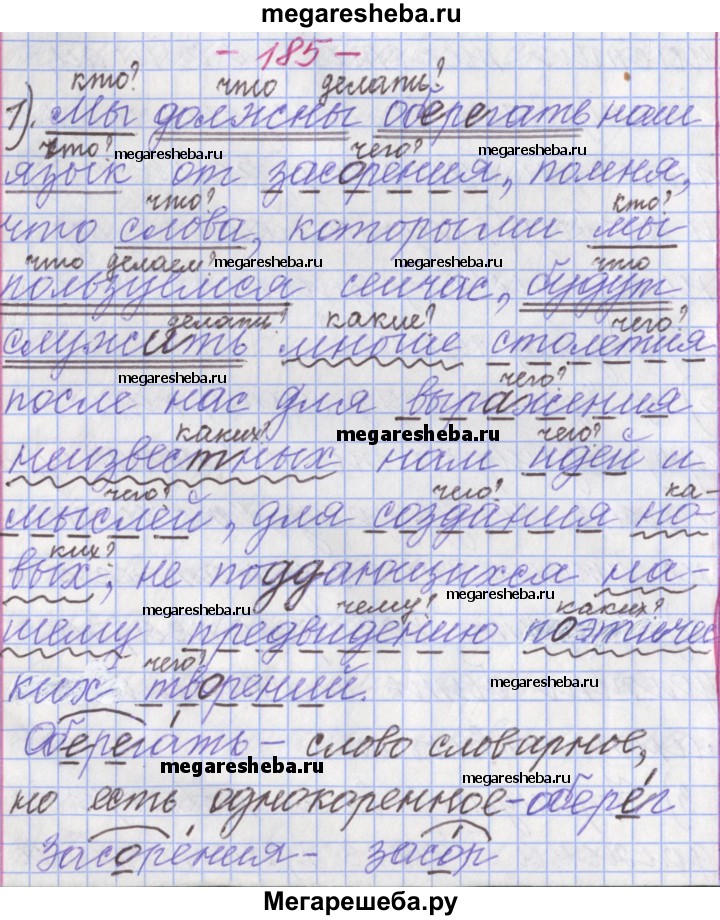 megaresheba.ru
- 185 -
кто? что делать?
1). Мы должны оберегать наш
что? megaresheba.ru чего? megaresheba.ru
язык от засорения, помня,
что? кто?
что слова, которыми мы
что делаем? megaresheba.ru megaresheba.ru что
пользуемся сейчас, будут
делать? какие? чего?
служить многие столетия
megaresheba.ru чего?
после нас для выражения
каких? megaresheba.ru чего?
неизвестных нам идей и
чего? чего? ка-
мыслей, для создания но-
ких?
вых, не поддающихся на-
megaresheba.ru чему? megaresheba.ru каких?
шему предвидению поэтичес
чего? megaresheba.ru
ких творений.
Оберегать – слово словарное,
megaresheba.ru megaresheba.ru
но есть однокоренное-оберег
Засорения – засор
Мегарешеба.ру